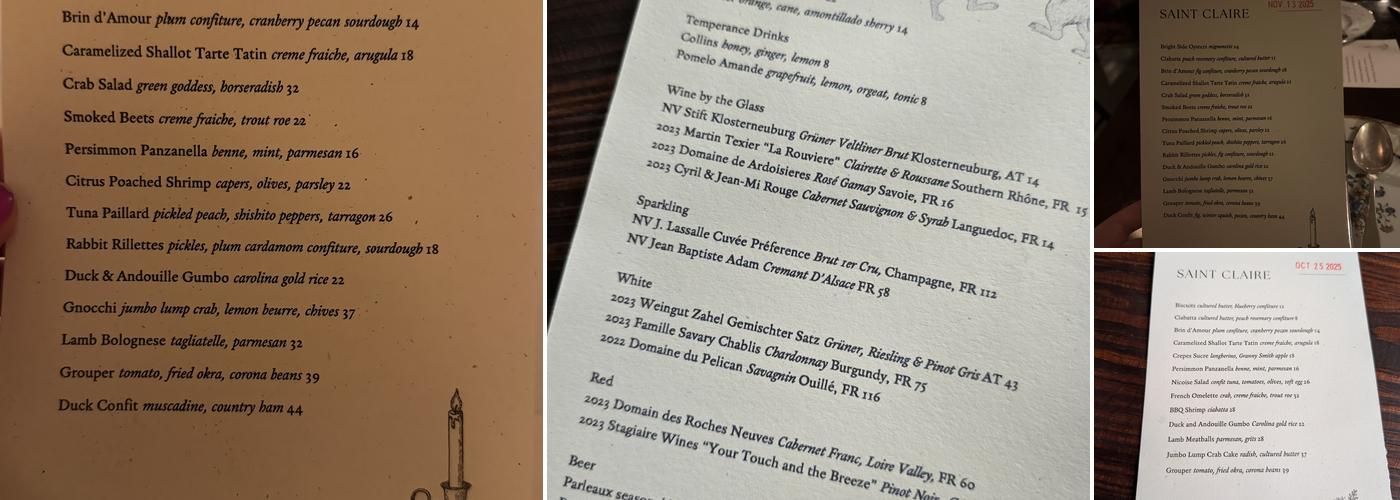 Brin d'Amour plum confiture, cranberry pecan sourdough 14
Caramelized Shallot Tarte Tatin creme fraiche, arugula 18
Crab Salad green goddess, horseradish 32
Smoked Beets creme fraiche, trout roe 22
Persimmon Panzanella benne, mint, parmesan 16
Citrus Poached Shrimp capers, olives, parsley 22
Tuna Paillard pickled peach, shishito peppers, tarragon 26
Rabbit Rillettes pickles, plum cardamom confiture, sourdough 18
Duck & Andouille Gumbo carolina gold rice 22
Gnocchi jumbo lump crab, lemon beurre, chives 37
Lamb Bolognese tagliatelle, parmesan 32
Grouper tomato, fried okra, corona beans 39
Duck Confit muscadine, country ham 44
orange, cane, amontillado sherry 14
Temperance Drinks
Collins honey, ginger, lemon 8
Pomelo Amande grapefruit, lemon, orgeat, tonic 8
Wine by the Glass
NV Stift Klosterneuburg Grüner Veltliner Brut Klosterneuburg, AT 14
2023 Martin Texier "La Rouviere" Clairette & Roussane Southern Rhône, FR 15
2023 Domaine de Ardoisieres Rosé Gamay Savoie, FR 16
2023 Cyril & Jean-Mi Rouge Cabernet Sauvignon & Syrah Languedoc, FR 14
Sparkling
NV J. Lassalle Cuvée Préference Brut 1er Cru, Champagne, FR 112
NV Jean Baptiste Adam Cremant D'Alsace FR 58
White
2023 Weingut Zahel Gemischter Satz Grüner, Riesling & Pinot Gris AT 43
2023 Famille Savary Chablis Chardonnay Burgundy, FR 75
2022 Domaine du Pelican Savagnin Ouillé, FR 116
Red
2023 Domain des Roches Neuves Cabernet Franc, Loire Valley, FR 60
2023 Stagiaire Wines "Your Touch and the Breeze" Pinot Noir
Beer
Parleaux
SAINT CLAIRE
NOV 13 2025
Bright Side Oysters mignonette 24
Ciabatta peach rosemary confiture, cultured butter 11
Brin d'Amour fig confiture, cranberry pecan sourdough 18
Caramelized Shallot Tarte Tatin creme fraiche, arugula 21
Crab Salad green goddess, horseradish 32
Smoked Beets creme fraiche, trout roe 22
Persimmon Panzanella benne, mint, parmesan 16
Citrus Poached Shrimp capers, olives, parsley 22
Tuna Paillard pickled peach, shishito peppers, tarragon 26
Rabbit Rillettes pickles, fig confiture, sourdough 21
Duck & Andouille Gumbo carolina gold rice 22
Gnocchi jumbo lump crab, lemon beurre, chives 37
Lamb Bolognese tagliatelle, parmesan 32
Grouper tomato, fried okra, corona beans 39
Duck Confit fig, winter squash, pecans, country ham 44
SAINT CLAIRE
OCT 25 2025
Biscuits cultured butter, blueberry confiture 12
Ciabatta cultured butter, peach rosemary confiture 8
Brin d'Amour plum confiture, cranberry pecan sourdough 14
Caramelized Shallot Tarte Tatin creme fraiche, arugula 18
Crepes Sucre longherino, Granny Smith apple 18
Persimmon Panzanella benne, mint, parmesan 16
Nicoise Salad confit tuna, tomatoes, olives, soft egg 26
French Omelette crab, creme fraiche, trout roe 32
BBQ Shrimp ciabatta 28
Duck and Andouille Gumbo Carolina gold rice 22
Lamb Meatballs parmesan, grits 28
Jumbo Lump Crab Cake radish, cultured butter 37
Grouper tomato, fried okra, corona beans 39